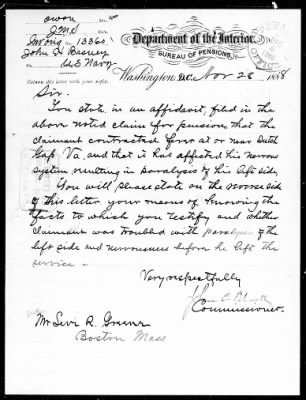 Department of the Interior,
BUREAU OF PENSIONS,
13360
John S.
U.S. Navy
Return this letter with your reply.
Washington, D.C., Nov 26 1888
Sir.
You state, in an affidavit, filed in the
above noted claim for pension, that the
claimant contracted at or near Dutch
Gap Va, and that it has affected his nervous
system resulting in paralysis of his left side.
You will please state on the reverse side
of this letter your means of knowing the
facts to which you testify and whether
claimant was troubled with paralysis of the
left side and nervousness before he left the
service -
Very respectfully
Commissioner.
Mr Levi R.
Boston Mass